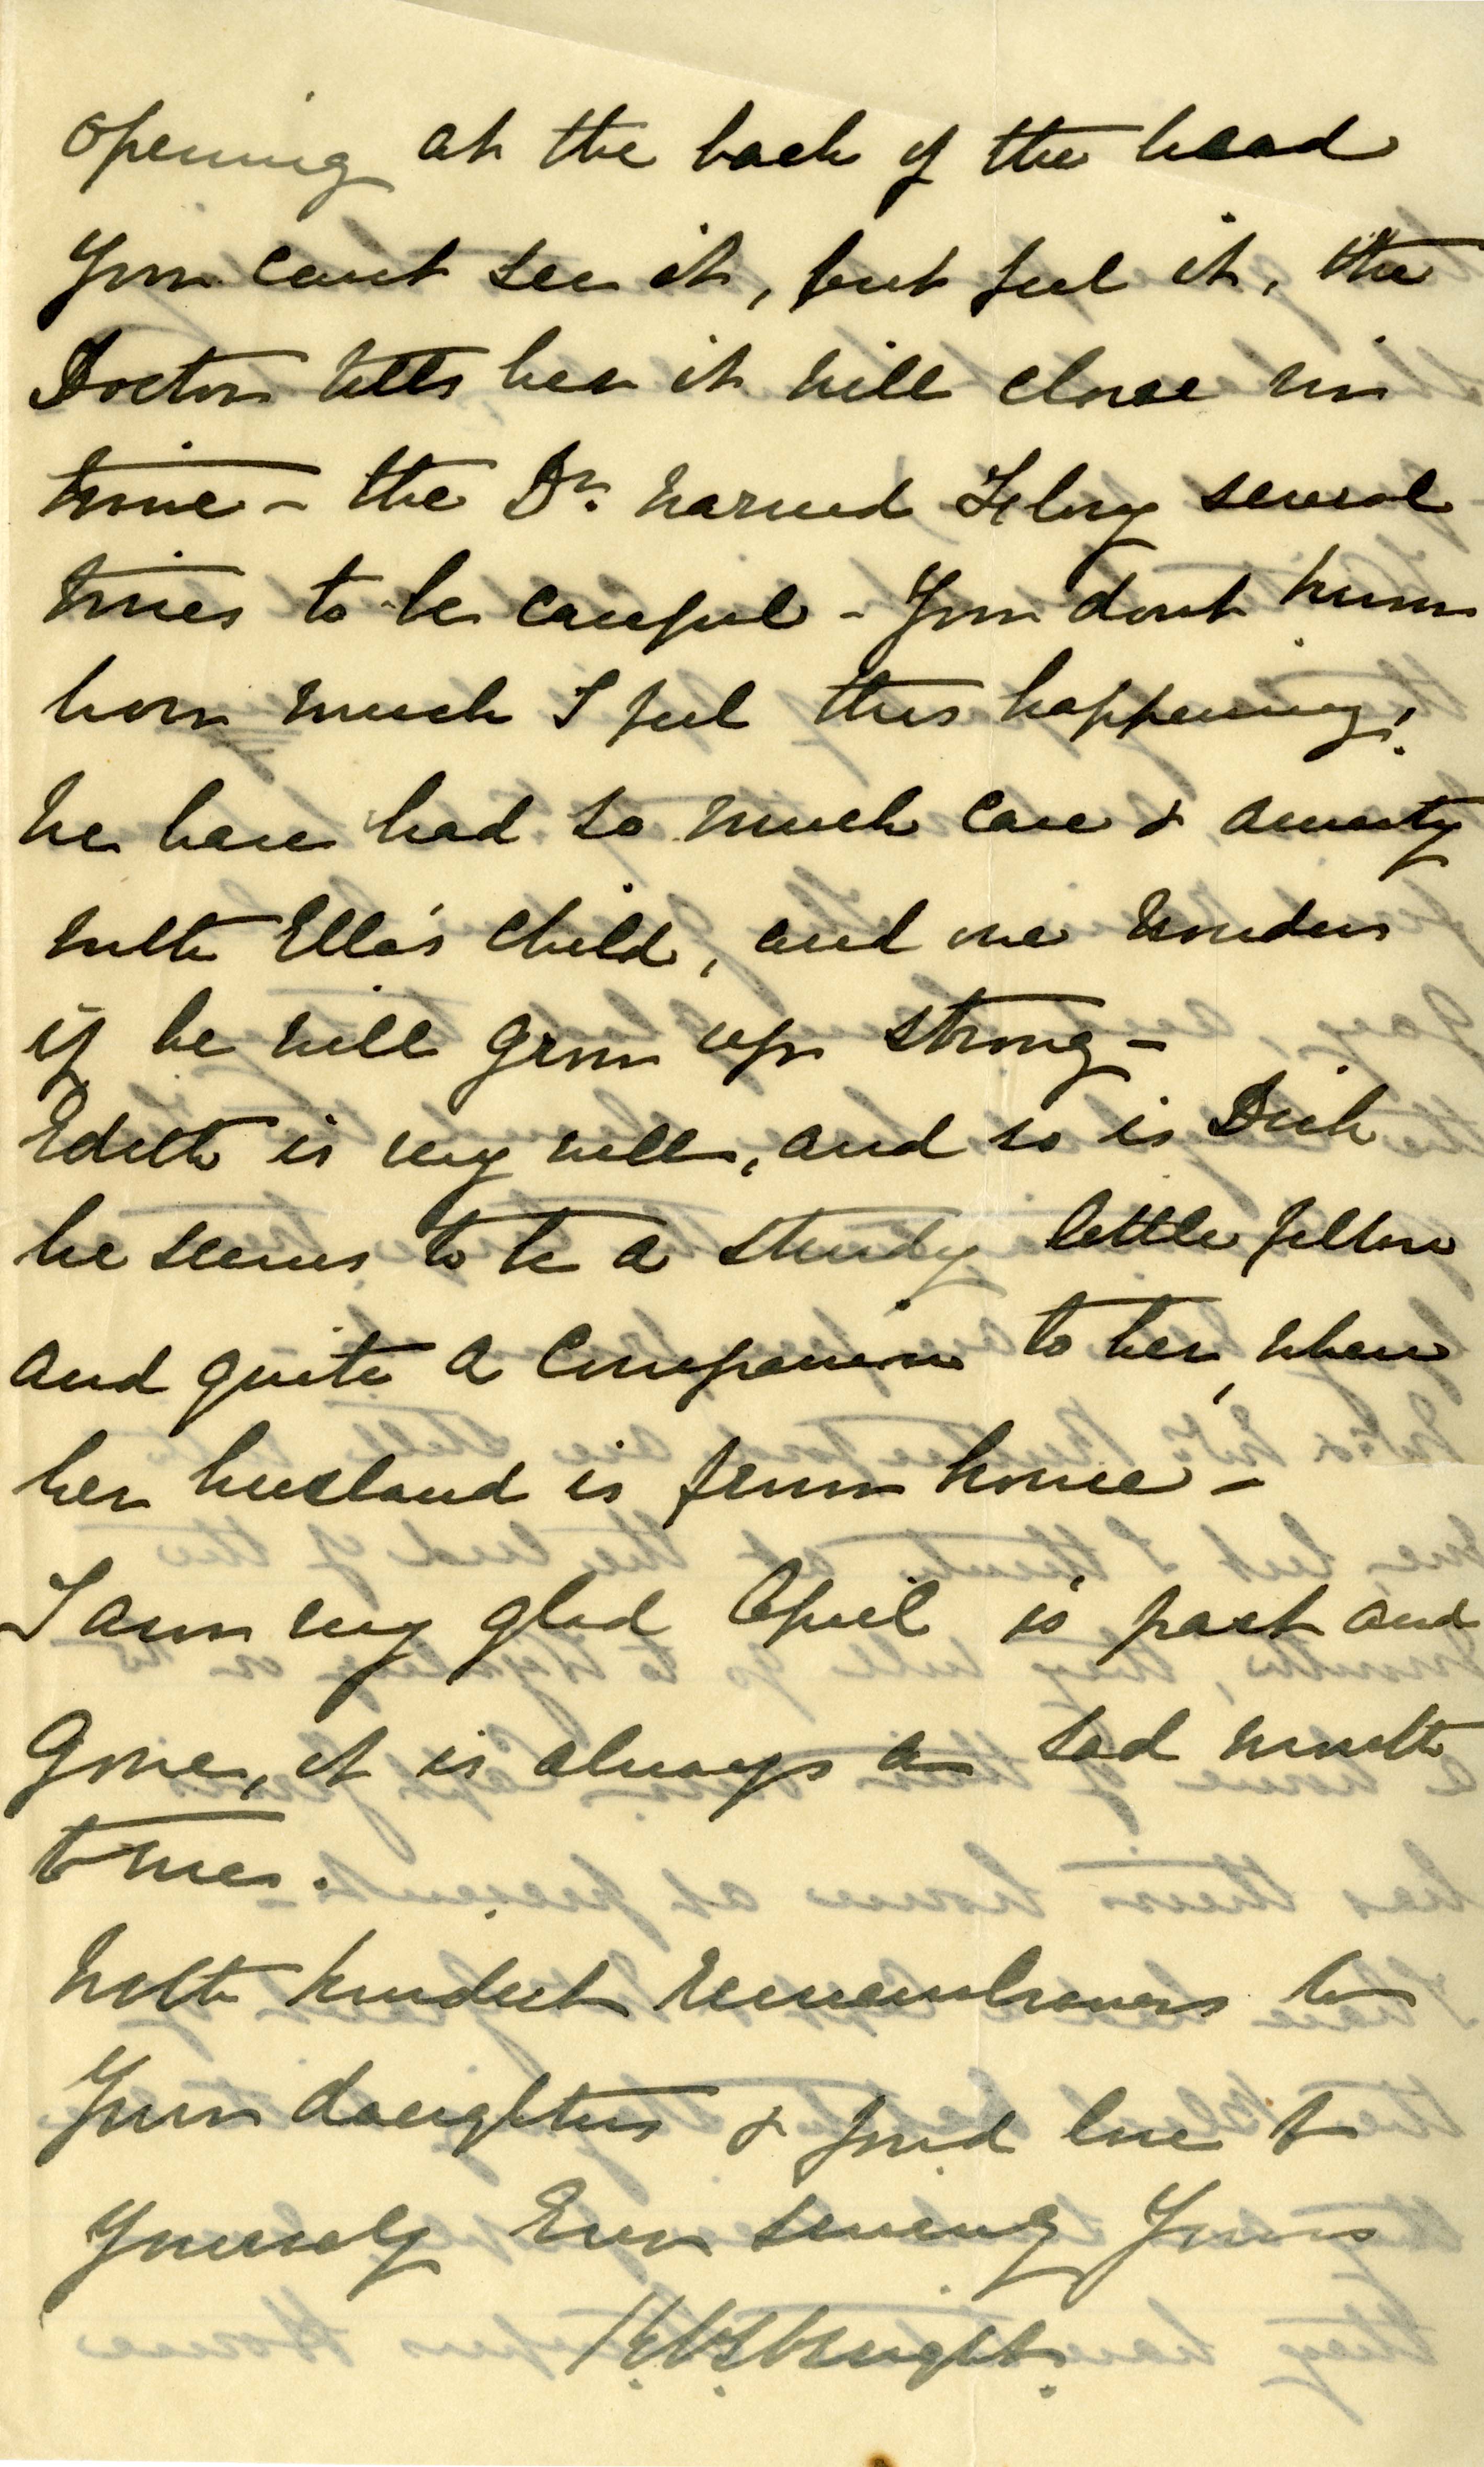 opening at the back of the head
You cant see it, but feel it, the
Doctor tells her it will close in
time - the Dr. warned several
times to be careful - You dont know
how much I feel this happening!
We have had so much care & anxiety
with Ella's child, and one wonders
if he will grow up strong -
Edith is very well, and so is Dick
he seems to be a sturdy little fellow
and quite a Companion to her, when
her husband is from home -
I am very glad April is past and
gone, it is always a sad month
to me.
With kindest remembrances to
Your daughters & fond love to
Yourself Ever Yours